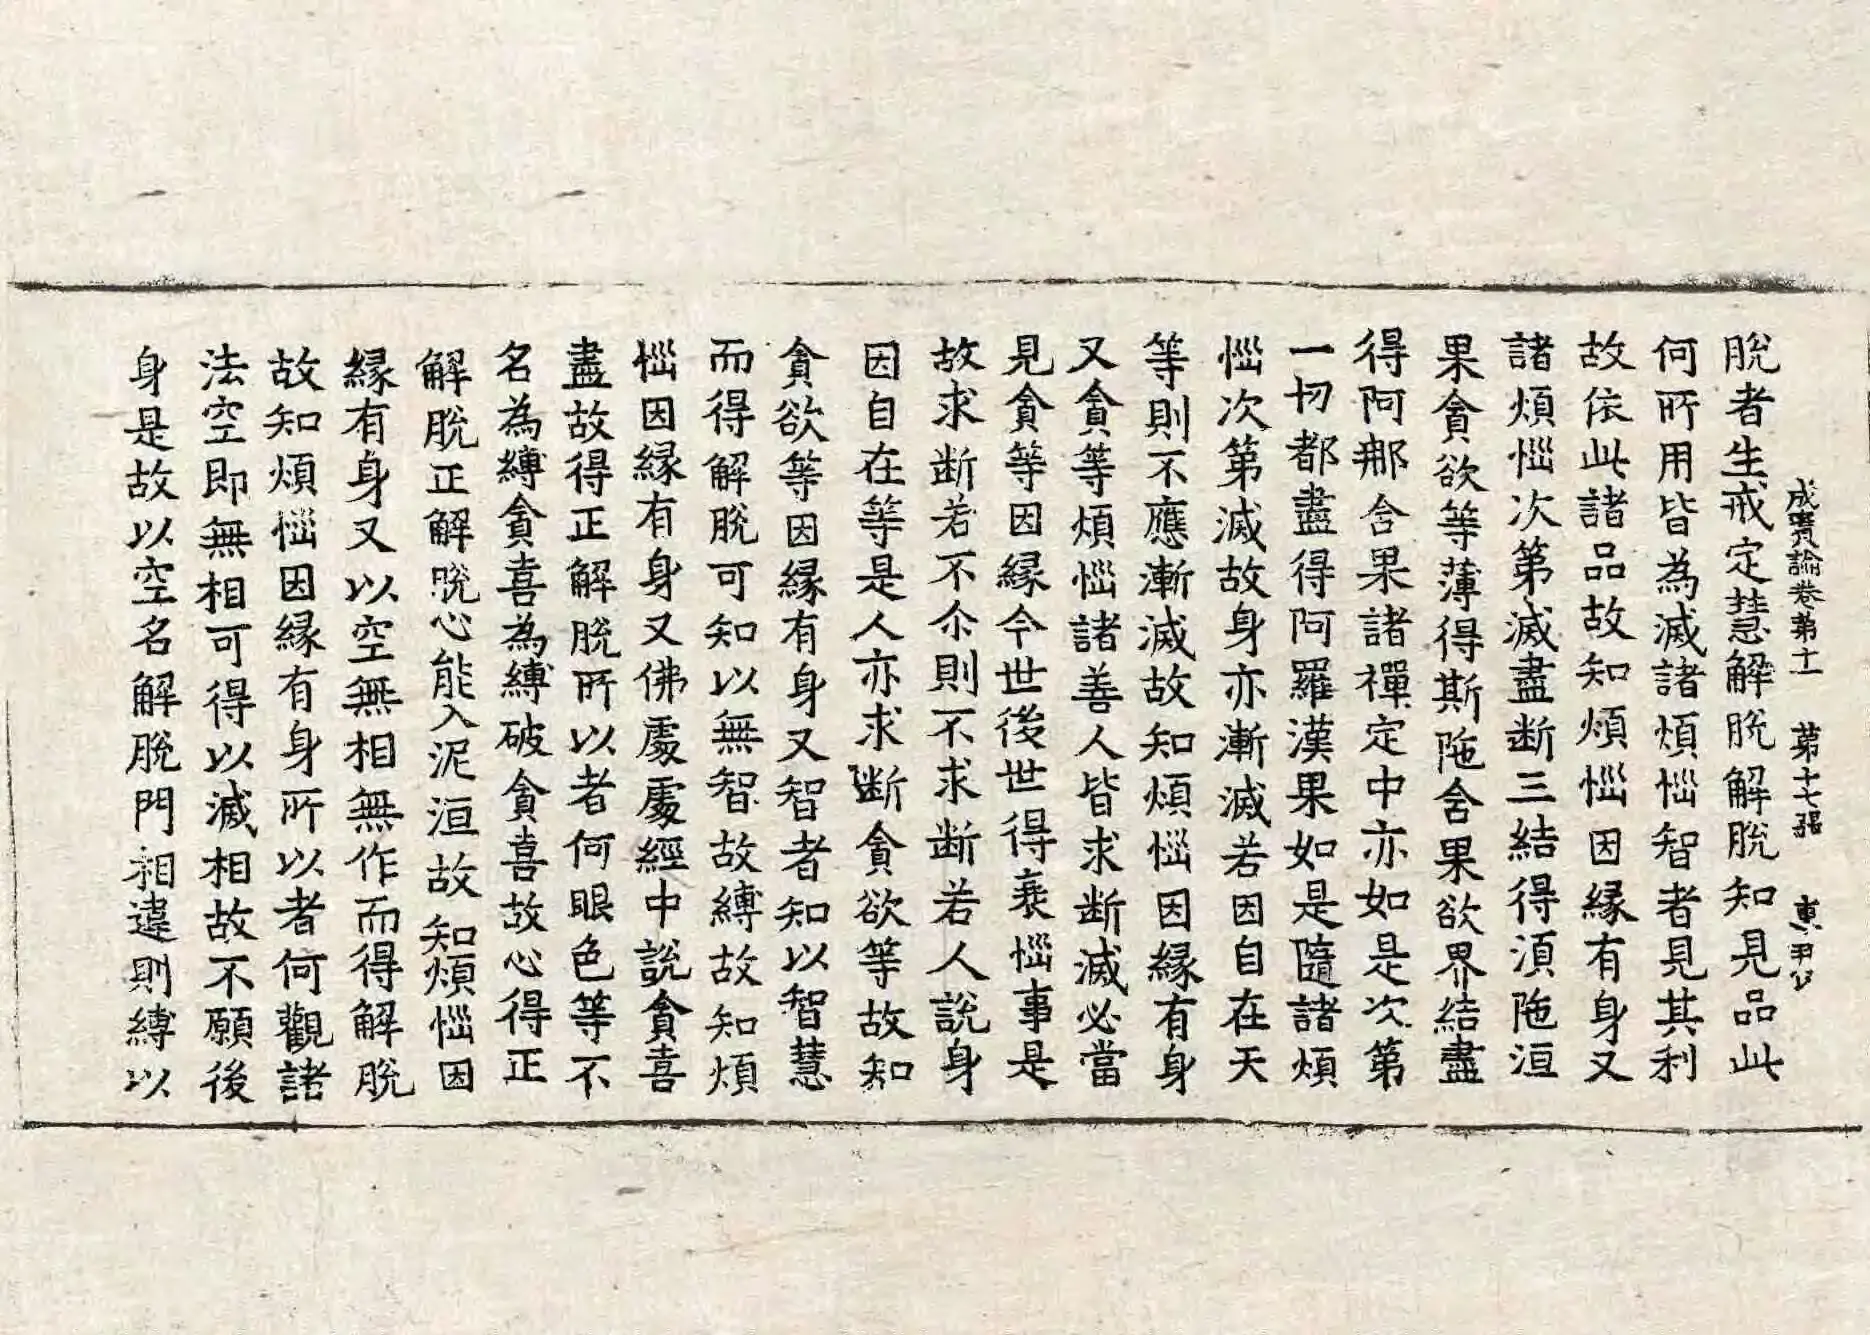 成實論卷第十一 第十七張 東尹公
脫者生戒定慧解脫解脫知見品此
何所用皆為滅諸煩惱智者見其利
故依此諸品故知煩惱因緣有身又
諸煩惱次第滅盡断三結得湏陁洹
果貪欲等薄得斯陁含果欲界結盡
得阿那含果諸禪定中亦如是次第
一切都盡得阿羅漢果如是隨諸煩
惱次第滅故身亦漸滅若因自在天
等則不應漸滅故知煩惱因緣有身
又貪等煩惱諸善人皆求断滅必當
見貪等因緣今世後世得衰惱事是
故求断若不尒則不求断若人說身
因自在等是人亦求断貪欲等故知
貪欲等因緣有身又智者知以智慧
而得解脫可知以無智故縛故知煩
惱因緣有身又佛處處經中說貪喜
盡故得正解脫所以者何眼色等不
名為縛貪喜為縛破貪喜故心得正
解脫正解脫心能入泥洹故知煩惱因
緣有身又以空無相無作而得解脫
故知煩惱因緣有身所以者何觀諸
法空即無相可得以滅相故不願後
身是故以空名解脫門相違則縛以